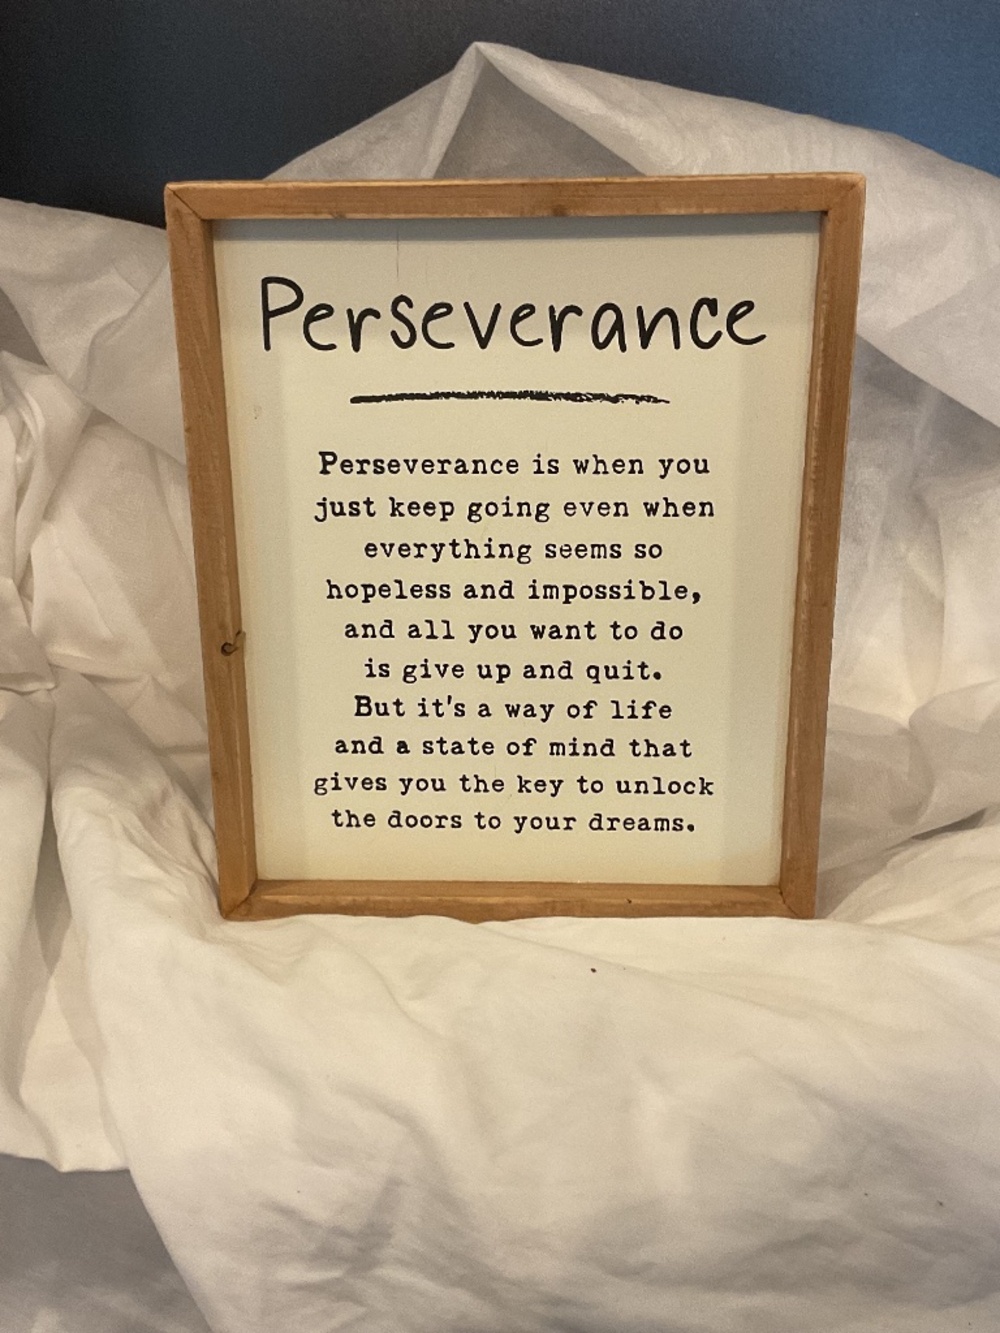 Perseverance
Perseverance is when you
just keep going even when
everything seems so
hopeless and impossible,
and all you want to do
is give up and quit.
But it's a way of life
and a state of mind that
gives you the key to unlock
the doors to your dreams.